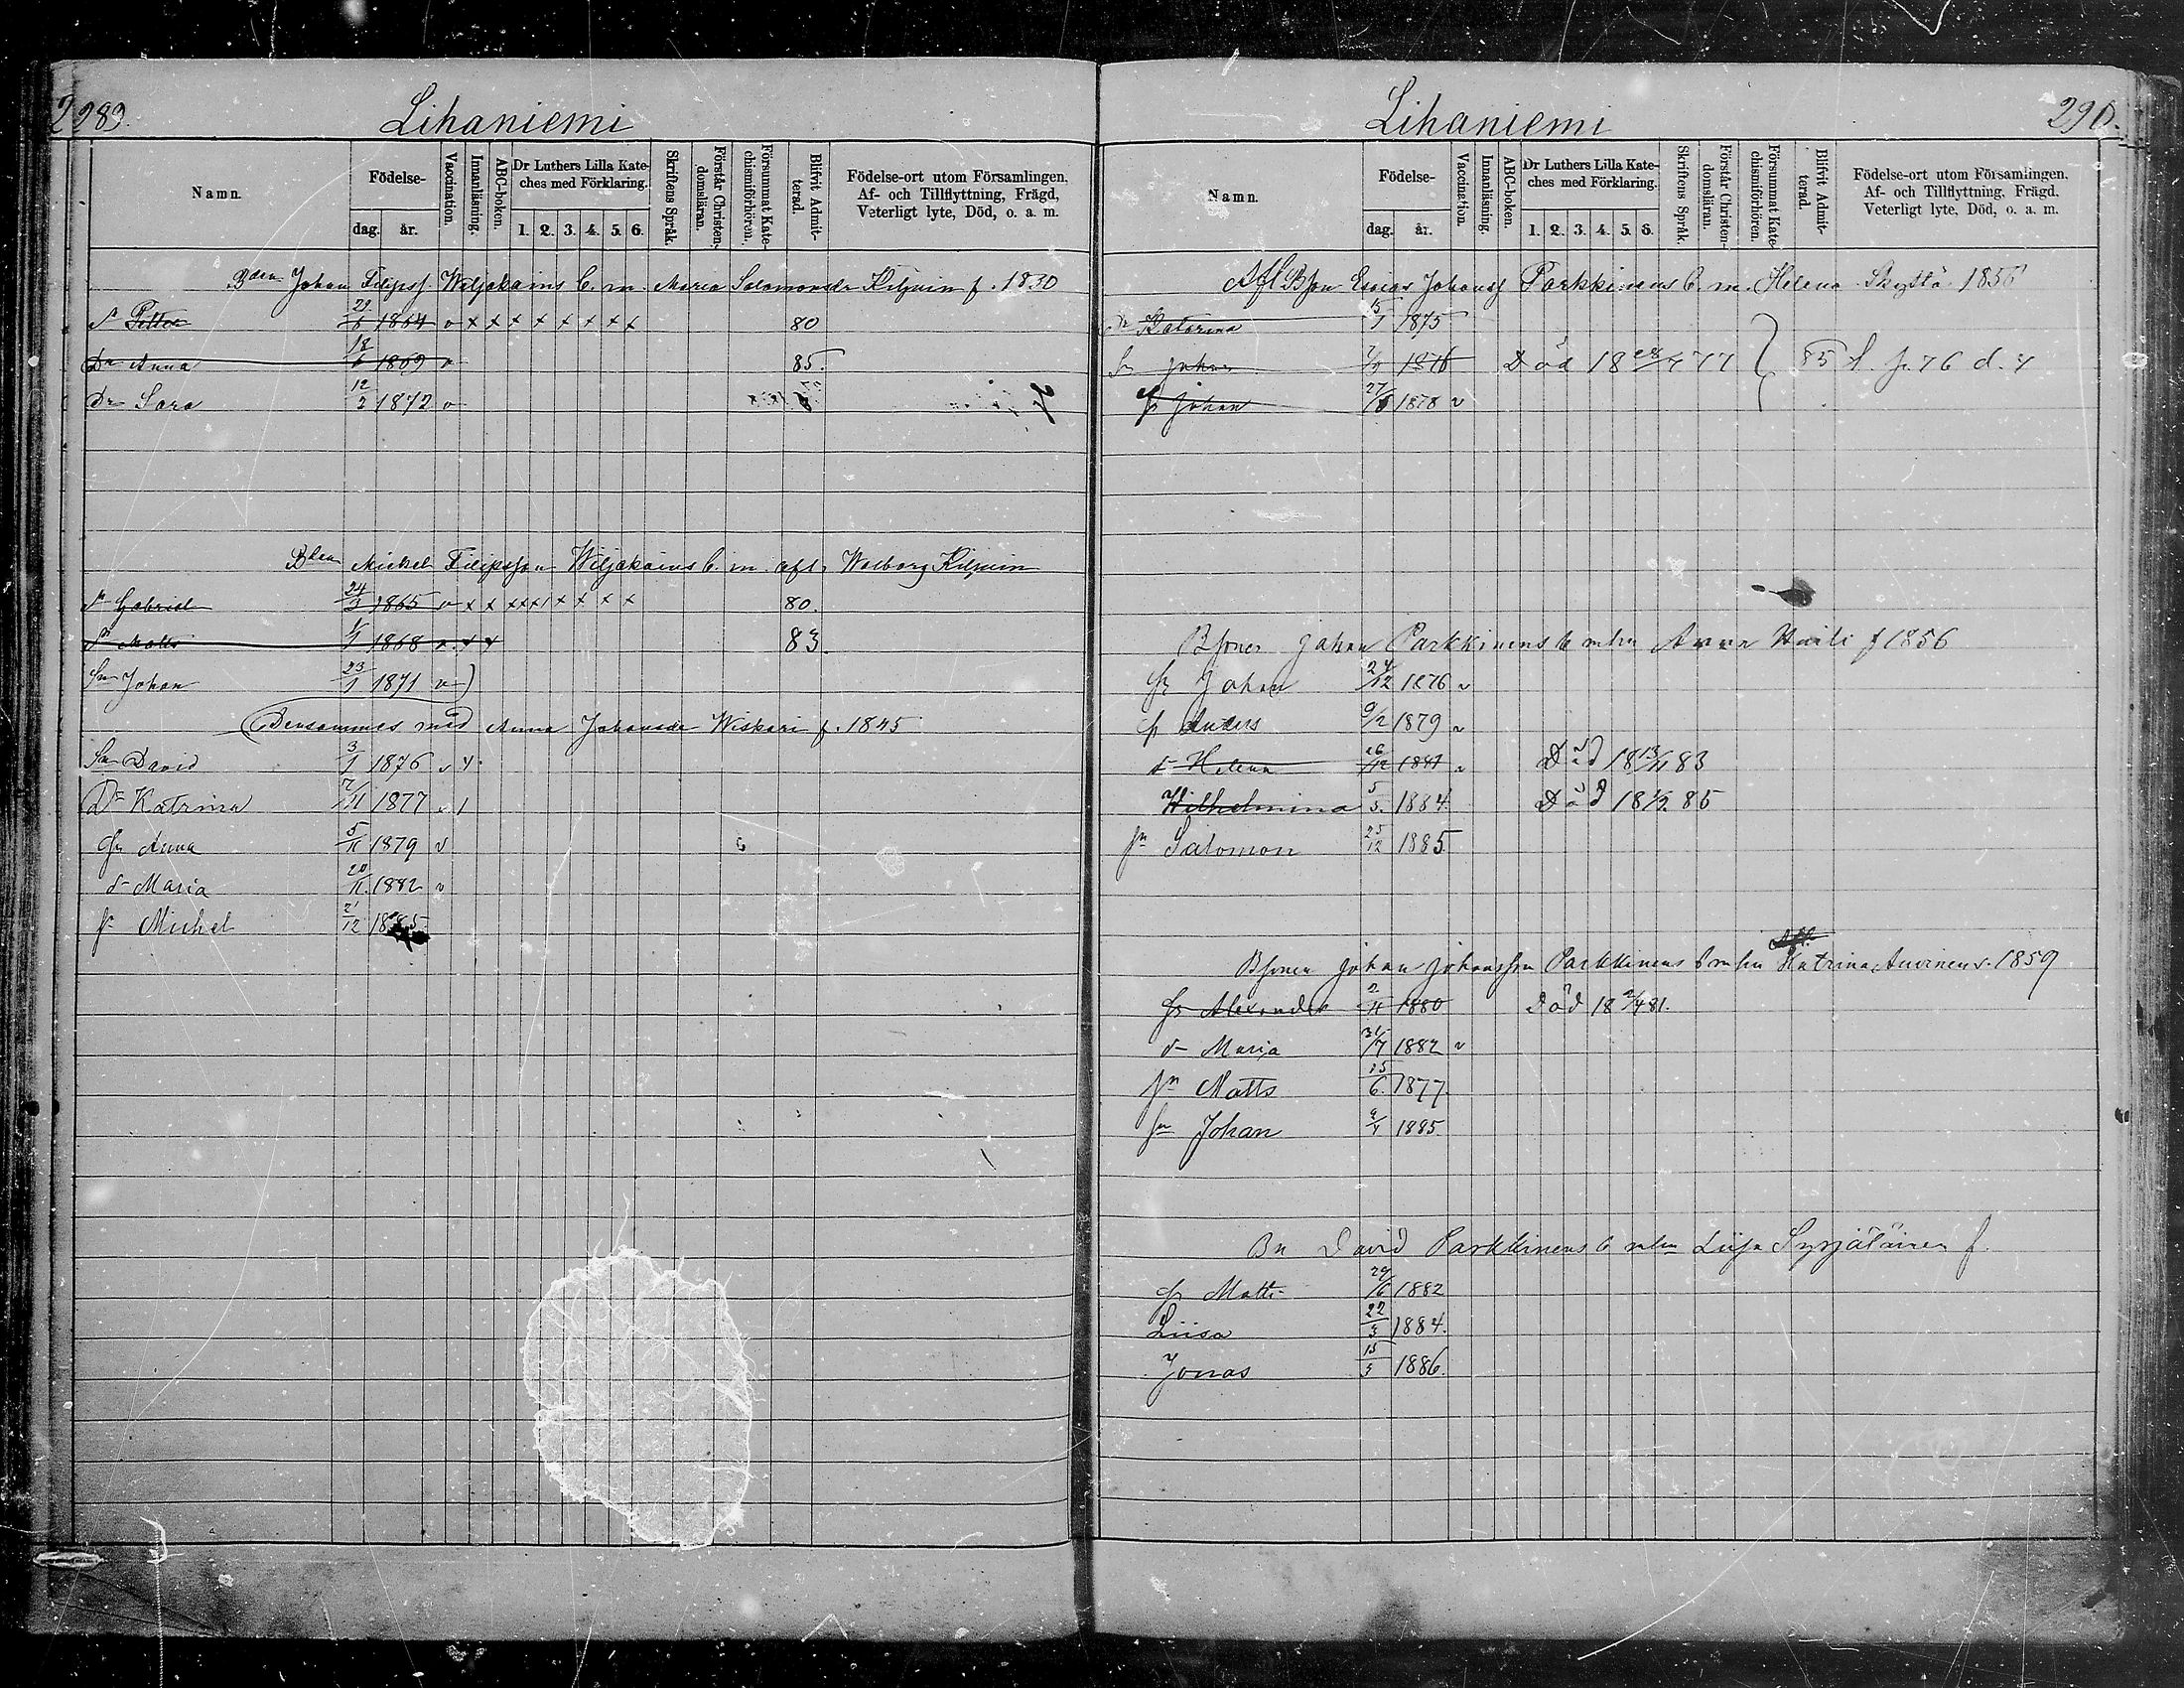 289.
Lihaniemi
Namn.
Födelse-
dag.
år.
Vaccination.
Innanläsning.
ABC-boken.
Dr Luthers Lilla Kate-
ches med Förklaring.
1. 2. 3. 4. 5. 6.
Skriftens Språk.
Förstår Christen-
domsläran.
Försummat Kate-
chismiförhören.
Blifvit Admit-
terad.
Födelse-ort utom Församlingen,
Af- och Tillflyttning, Frägd,
Veterligt lyte, Död, o. a. m.
Bden Johan Filipss. Wiljakains b. m. Maria Salomonsdr Kilpiin f. 1830
Sn Petter 1864 v x x x x x x x x 80
Dr Anna 18/6 1869 v 85.
Dr Sara 12/2 1872 v
Bden Michel Filipsson Wiljakains b. m. afl. Walborg Kilpiin
Sn Gabriel 24/3 1865 v x x x x x 1 x x x x 80.
Sn Matts 1/1 1868 83.
Sn Johan 23/1 1871 v
Densammes med Anna Johansdr Wiskari f. 1845
Sn David 3/1 1876 v
Dr Katrina 7/11 1877 v 1
Anna 5/11 1879 v
d- Maria 20/11. 1882 v
Sn Michel 21/12 1885
Lihaniemi
290.
Namn.
Födelse-
dag.
år.
Vaccination.
Innanläsning.
ABC-boken.
Dr Luthers Lilla Kate-
ches med Förklaring.
1. 2. 3. 4. 5. 6.
Skriftens Språk.
Förstår Christen-
domsläran.
Försummat Kate-
chismiförhören.
Blifvit Admit-
terad.
Födelse-ort utom Församlingen,
Af- och Tillflyttning, Frägd,
Veterligt lyte, Död, o. a. m.
Afl Bson Esaias Johanss Parkkinens b. m. Helena Skyttä 1856
Dr Katarina 15/1 1875
Sn Johan 1876 Död 18 77 85
Sn Johan 1878 v
Bsonen Johan Parkkinens b mhu Anna f 1856
Sn Johan 24/12 1876 v
Sn Anders 9/2 1879 v
d- Helena 1881 v Död 18 13/11 83
Wilhelmina 5/5. 1884 Död 18 85
Sn Salomon 25/12 1885
Bsonen Johan Johansson Parkkinens b mhu Afl. Katrina Auvinen 1859
Sn Alexander 2/11 1880 Död 18 81.
d- Maria 31/7 1882 v
Sn Matts 15/6. 1877.
Sn Johan 1885
Bn David Parkkinens b mhu Liisa Syrjäläinen f.
Sn Matts 29/6 1882
Liisa 22/3 1884.
Jonas 15/3 1886.